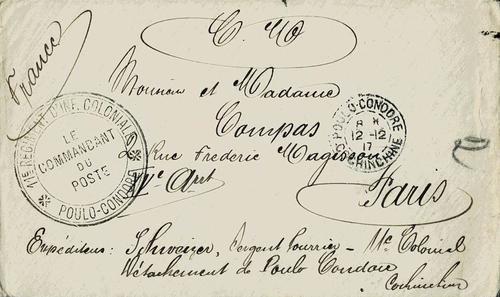 France
C. M.
Monsieur et Madame
Compas
2 Rue Frederic Magisson
XVe Arrt
Paris
11e REGIMENT D'INF. COLONIALE
LE
COMMANDANT
DU
POSTE
POULO-CONDORE
POULO-CONDORE
8 M
12-12
17
COCHINCHINE
Expéditeur: Schweizer, Sergent Fourrier - 11e Colonial
Détachement de Poulo Condore
Cochinchine